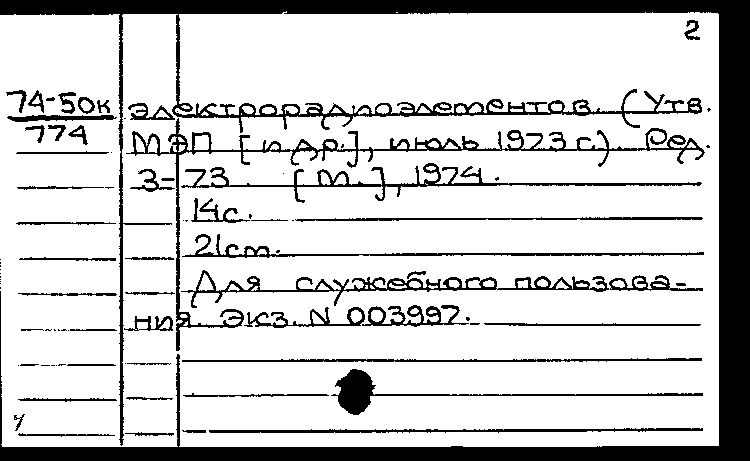 2
74-50к электрорадиоэлементов. (Утв.
774 МЭП [и др.], июль 1973 г.). Ред.
3-73. [М.], 1974.
14с.
21см.
Для служебного пользова-
ния. Экз. N 003997.